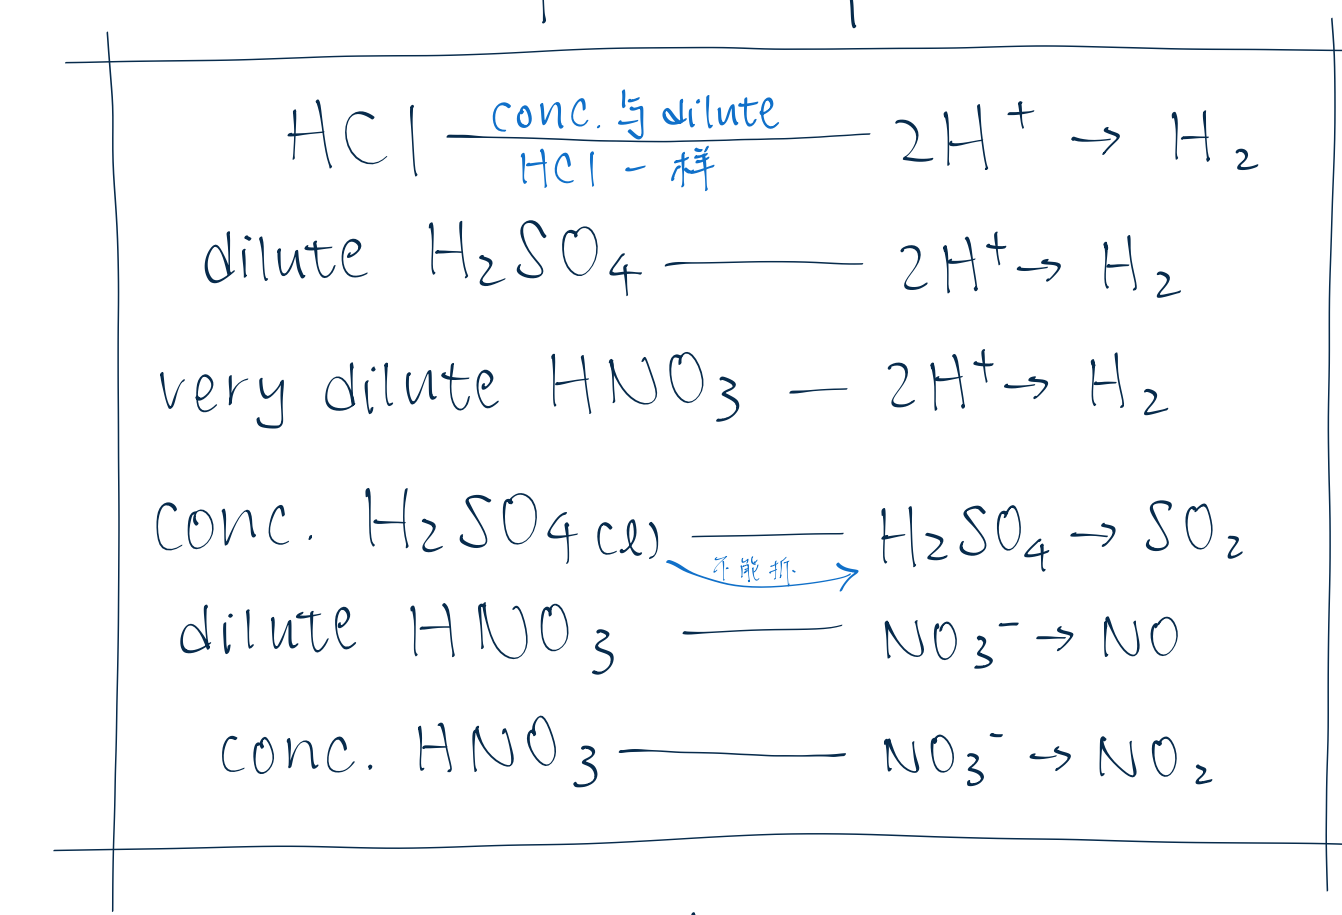 HCl conc. 与 dilute HCl 一样 2H⁺ → H₂
dilute H₂SO₄ — 2H⁺ → H₂
very dilute HNO₃ — 2H⁺ → H₂
conc. H₂SO₄(l) — H₂SO₄ → SO₂
不能拆
dilute HNO₃ — NO₃⁻ → NO
conc. HNO₃ — NO₃⁻ → NO₂